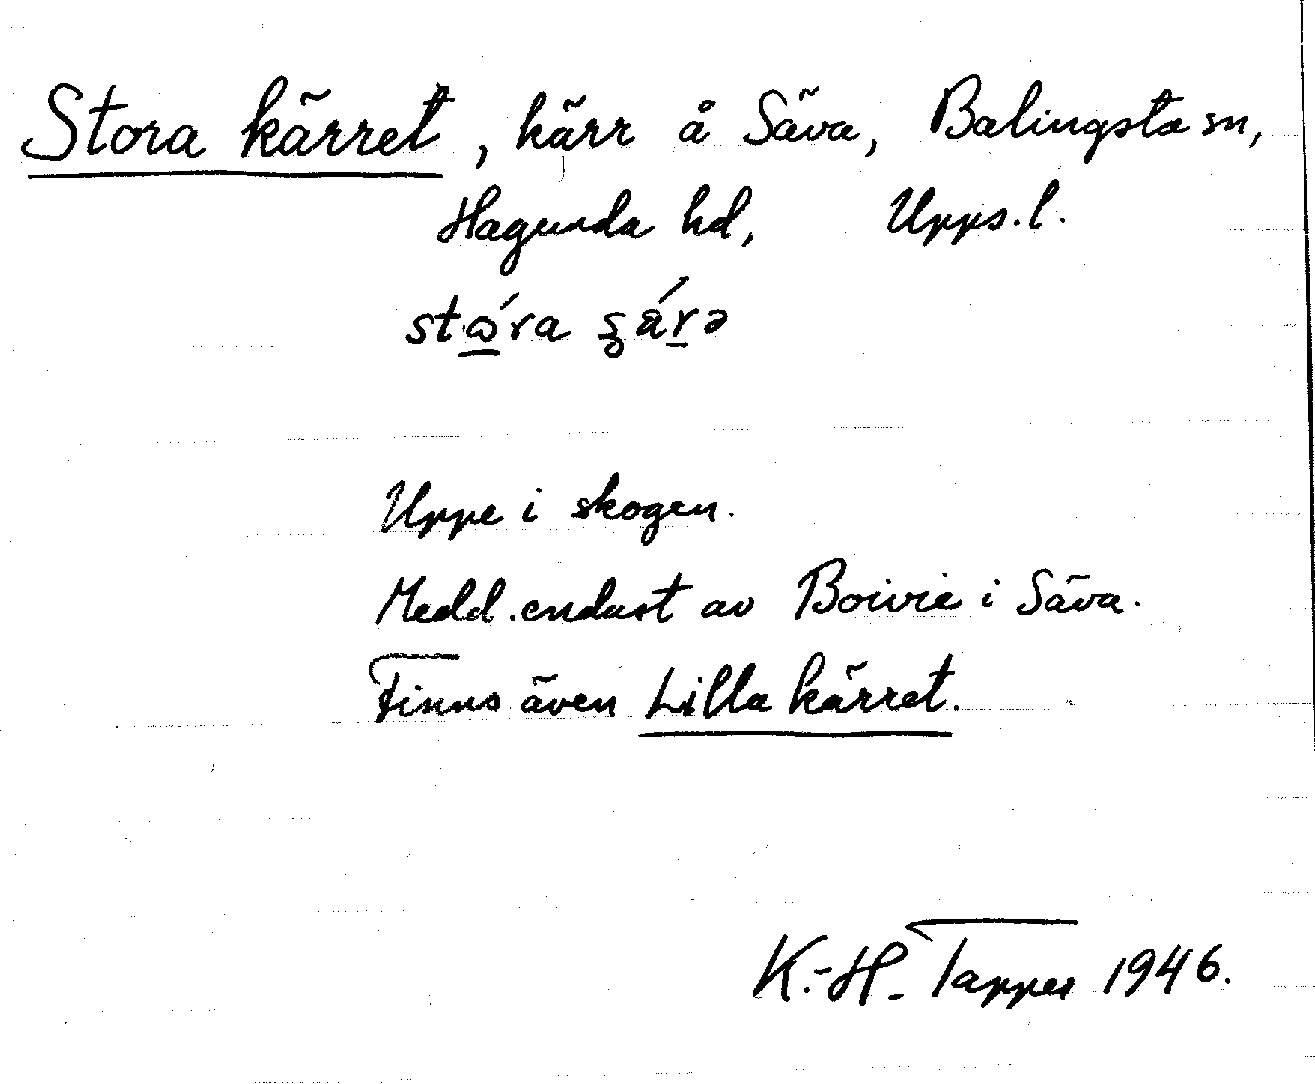 Stora kärret, kärr å Säva, Balingsta sn,
Hagunda hd, Upps.l.
Uppe i skogen.
Medd. endast av Boivie i Säva.
Finns även Lilla kärret.
K.-H. Tapper 1946.